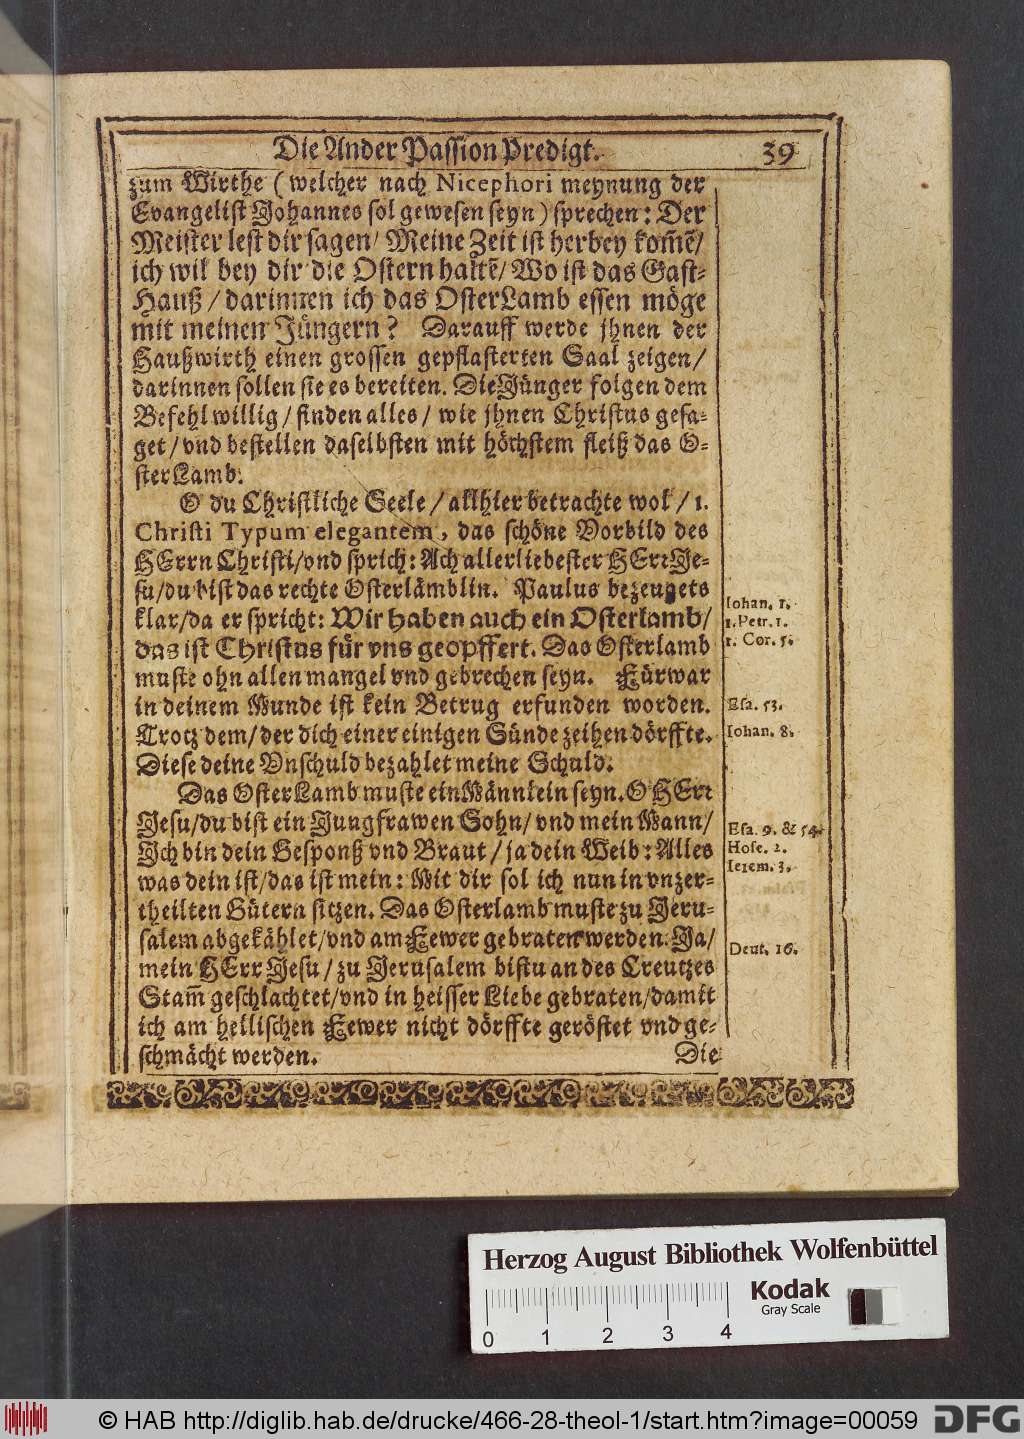 Die Ander Passion Predigt. 39
zum Wirthe (welcher nach Nicephori meynung der
Evangelist Johannes sol gewesen seyn) sprechen: Der
Meister lest dir sagen/ Meine Zeit ist herbey kom̃ẽ/
ich wil bey dir die Ostern haltẽ/ Wo ist das Gast-
Hauß/ darinnen ich das OsterLamb essen möge
mit meinen Jüngern? Darauff werde jhnen der
Haußwirth einen grossen gepflasterten Saal zeigen/
darinnen sollen sie es bereiten. Die Jünger folgen dem
Befehl willig/ finden alles/ wie jhnen Christus gesa-
get/ vnd bestellen daselbsten mit höchstem fleiß das O-
sterLamb.
O du Christliche Seele/ allhier betrachte wol/ 1.
Christi Typum elegantem, das schöne Vorbild des
HErrn Christi/ vnd sprich: Ach allerliebester HErr Je-
su/ du bist das rechte Osterlämblin. Paulus bezeugets
klar/ da er spricht: Wir haben auch ein Osterlamb/
das ist Christus für vns geopffert. Das Osterlamb
muste ohn allen mangel vnd gebrechen seyn. Fürwar
in deinem Munde ist kein Betrug erfunden worden.
Trotz dem/ der dich einer einigen Sünde zeihen dörffte.
Diese deine Vnschuld bezahlet meine Schuld.
Das OsterLamb muste ein Männlein seyn. O HErr
Jesu/ du bist ein Jungfrawen Sohn/ vnd mein Mann/
Ich bin dein Gesponß vnd Braut/ ja dein Weib: Alles
was dein ist/ das ist mein: Mit dir sol ich nun in vnzer-
theilten Gütern sitzen. Das Osterlamb muste zu Jeru-
salem abgekählet/ vnd am Fewer gebraten werden. Ja/
mein HErr Jesu/ zu Jerusalem bistu an des Creutzes
Stam̃ geschlachtet/ vnd in heisser Liebe gebraten/ damit
ich am hellischen Fewer nicht dörffte geröstet vnd ge-
schmächt werden. Die
Iohan. 1.
1. Petr. 1.
1. Cor. 5.
Esa. 53.
Iohan. 8.
Esa. 9. & 54.
Hose. 2.
Ierem. 3.
Deut. 16.
Herzog August Bibliothek Wolfenbüttel
Kodak
Gray Scale
0 1 2 3 4
© HAB http://diglib.hab.de/drucke/466-28-theol-1/start.htm?image=00059
DFG